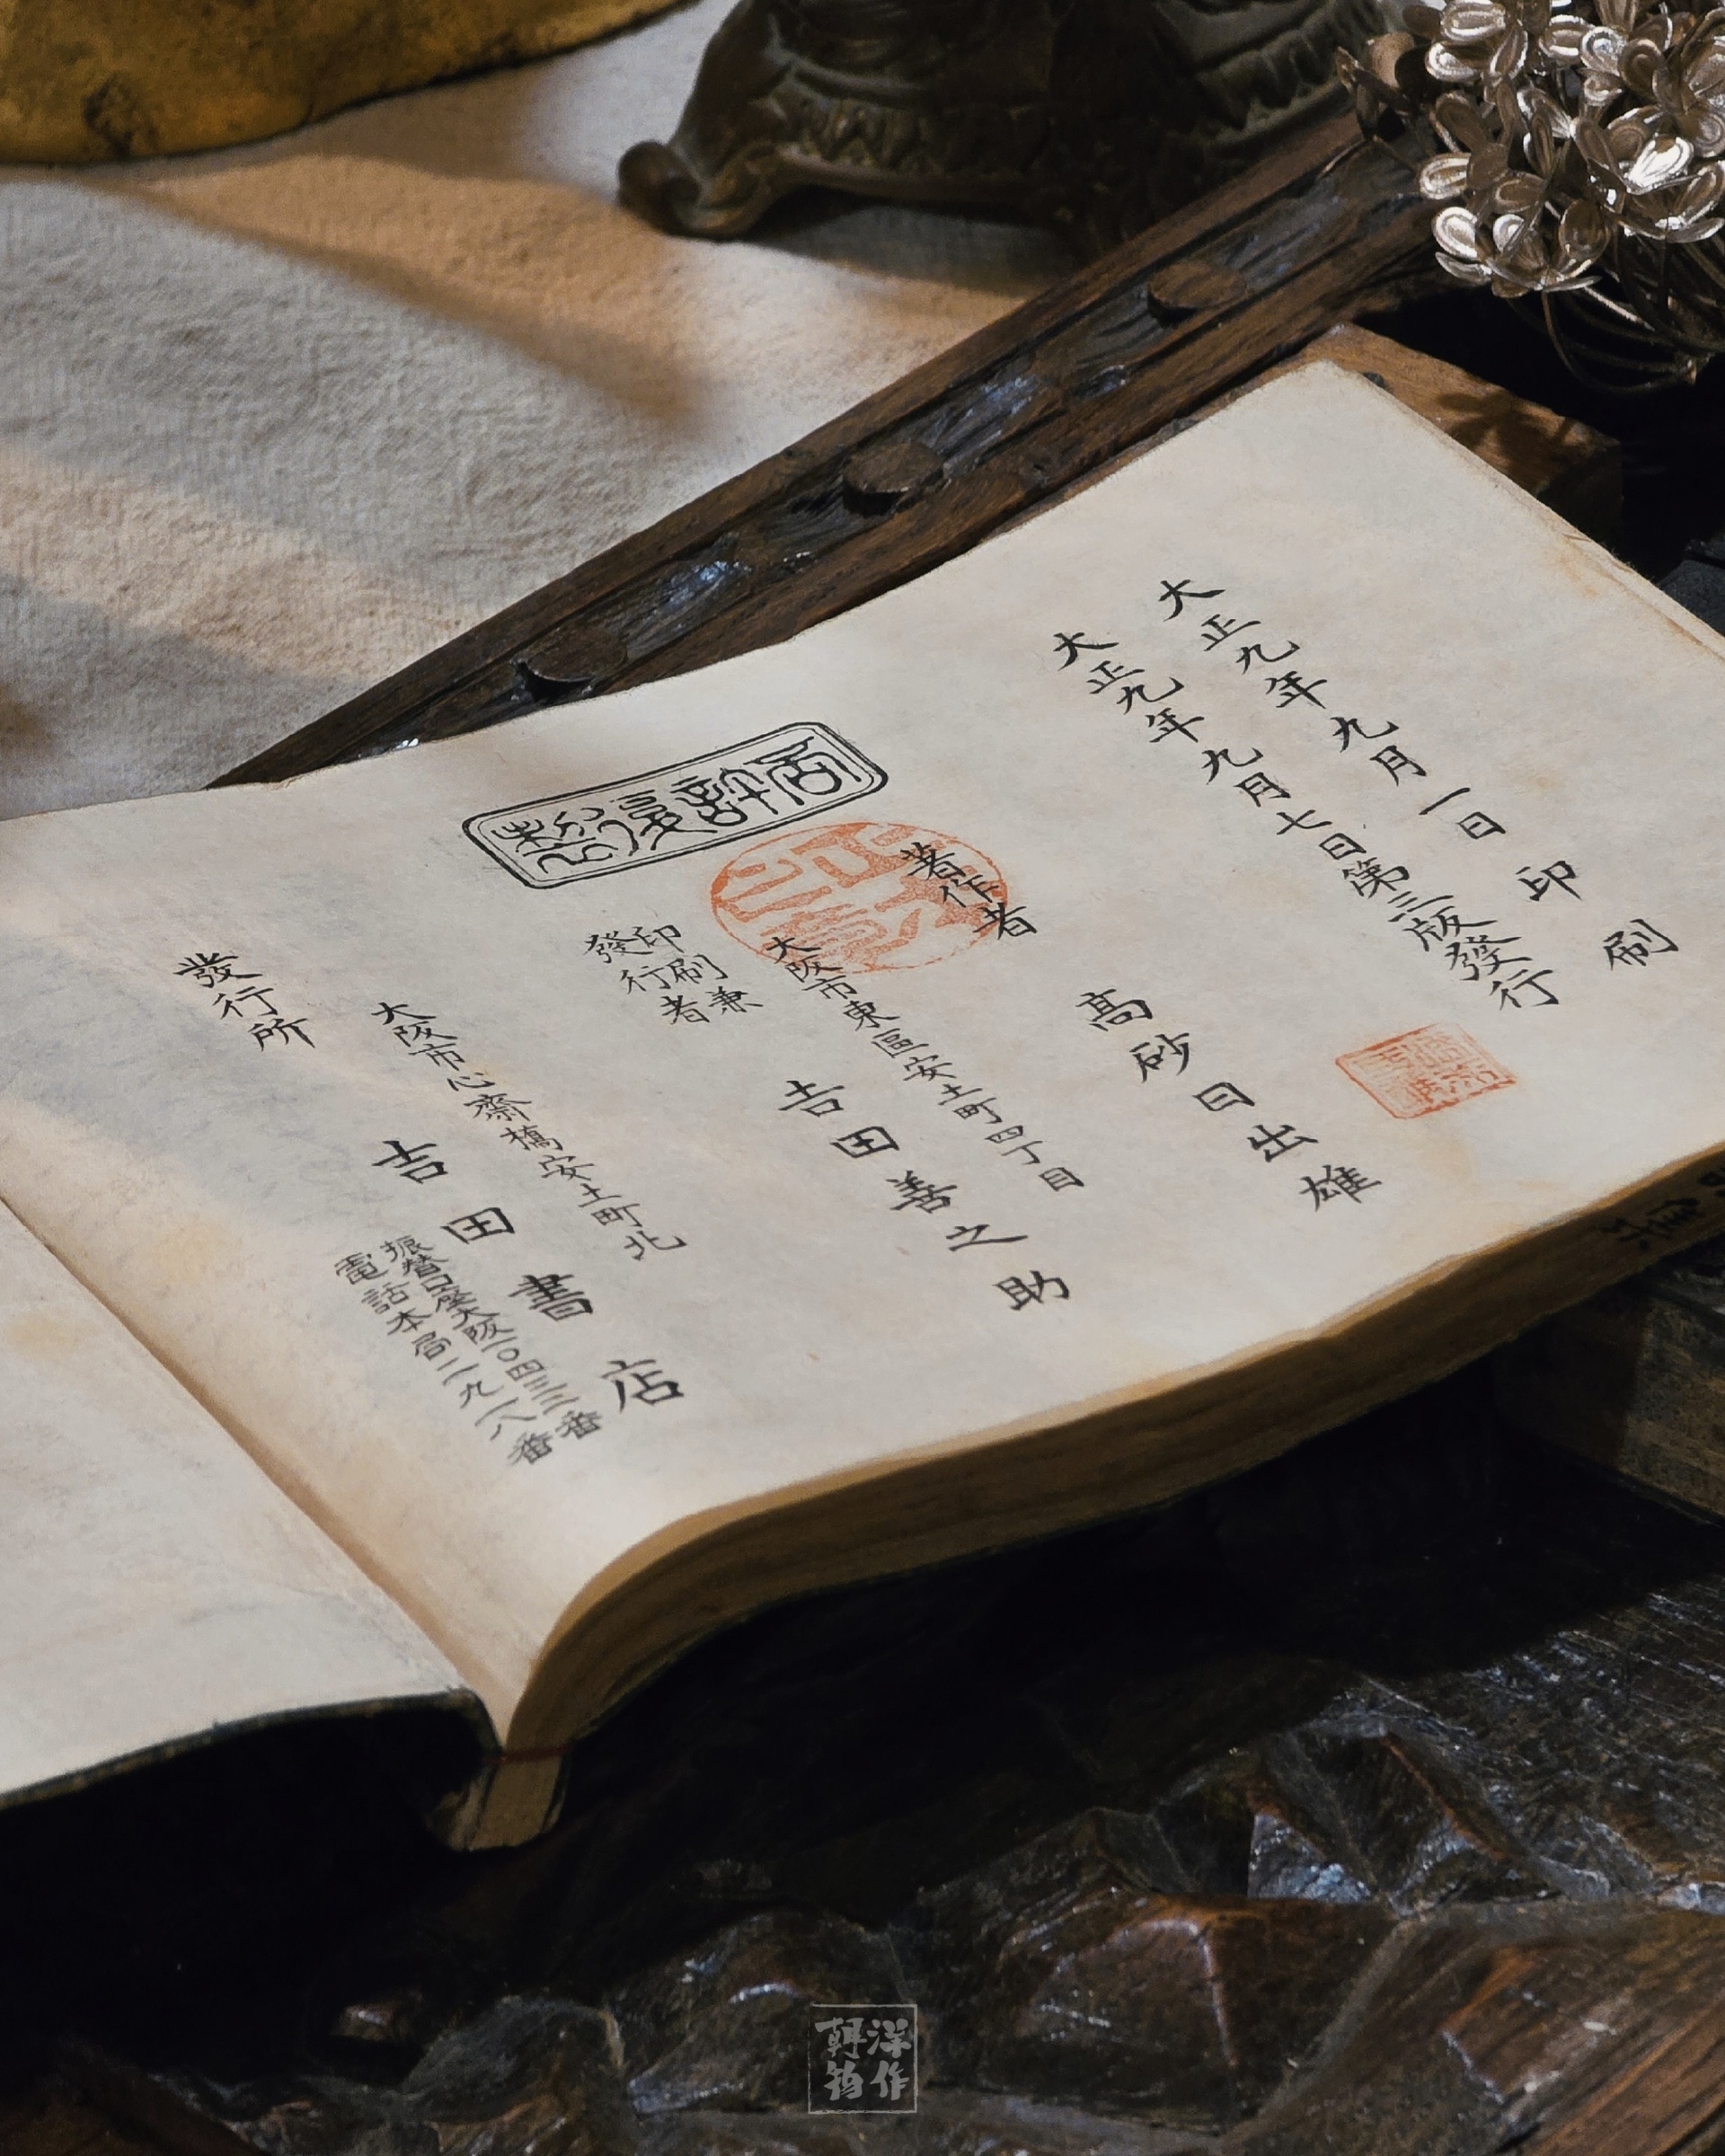 大正九年九月一日印刷
大正九年九月七日第三版發行
著作者
高砂日出雄
大阪市東區安土町四丁目
印刷兼
發行者
吉田善之助
大阪市心齋橋安土町北
發行所
吉田書店
振替口座大阪一〇四三三番
電話本局二九一八番